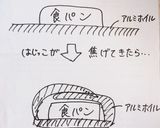 食パン
アルミホイル
はじっこが
焦げてきたら…
アルミホイル
食パン